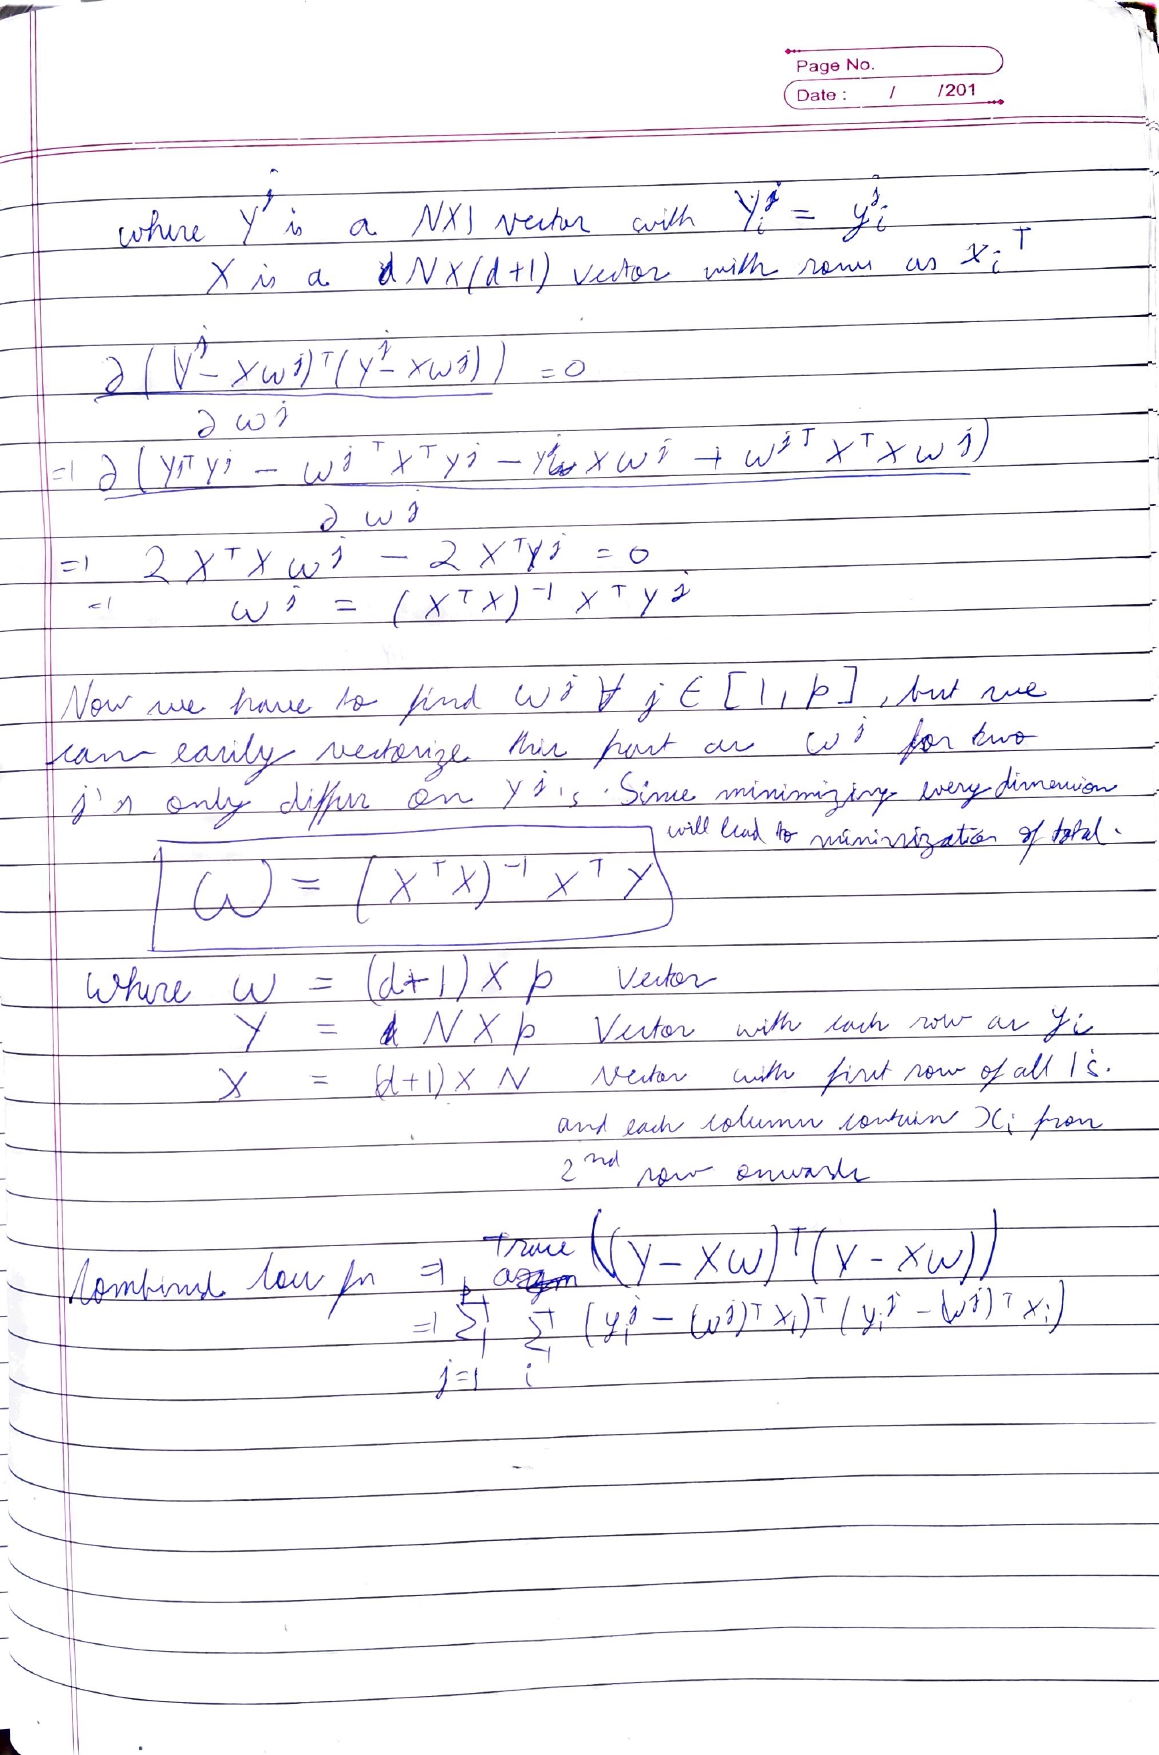 Page No.
Date : / /201
where Y^j is a NX1 vector with Y_i^j = y_i^j
X is a NX(d+1) vector with rows as x_i^T
∂((Y^j - Xw^j)^T(Y^j - Xw^j)) = 0
∂w^j
=> ∂(Y^jT Y^j - w^jT X^T Y^j - Y^j X w^j + w^jT X^T X w^j)
∂w^j
=> 2 X^T X w^j - 2 X^T Y^j = 0
=> w^j = (X^T X)^-1 X^T Y^j
Now we have to find w^j ∀ j ∈ [1, p], but we
can easily vectorize this part as w^j for two
j's only differ on Y^j's. Since minimizing every dimension
will lead to minimization of total.
W = (X^T X)^-1 X^T Y
where W = (d+1) X p Vector
Y = N X p Vector with each row as y_i
X = (d+1) X N Vector with first row of all 1's.
and each column contain x_i from
2nd row onwards
Combined loss fn => Trace ((Y - XW)^T (Y - XW))
=> p∑j=1 ∑i (y_i^j - (w^j)^T x_i)^T (y_i^j - (w^j)^T x_i)